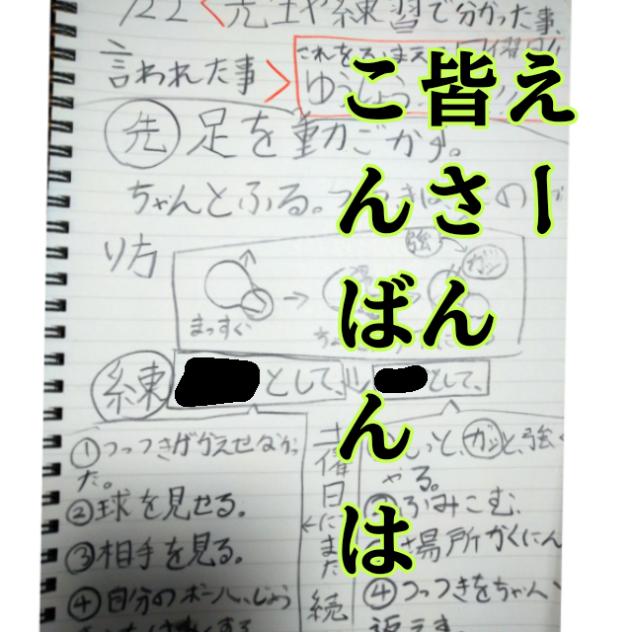 えー
皆さん
こんばんは
1/22
先生や練習で分かった事、
言われた事
これをふまえ
ゆうしょう
先 足を動ごかす。
ちゃんとふる。
り方
強
ガッ
まっすぐ
練
として、
として、
①つっつきがかえせなかっ
た。
②球を見せる。
③相手を見る。
④自分のボール
土曜
日
にまた
続
ガッと、強く
やる。
ふみこむ、
場所かくにん
④つっつきをちゃん
返えす